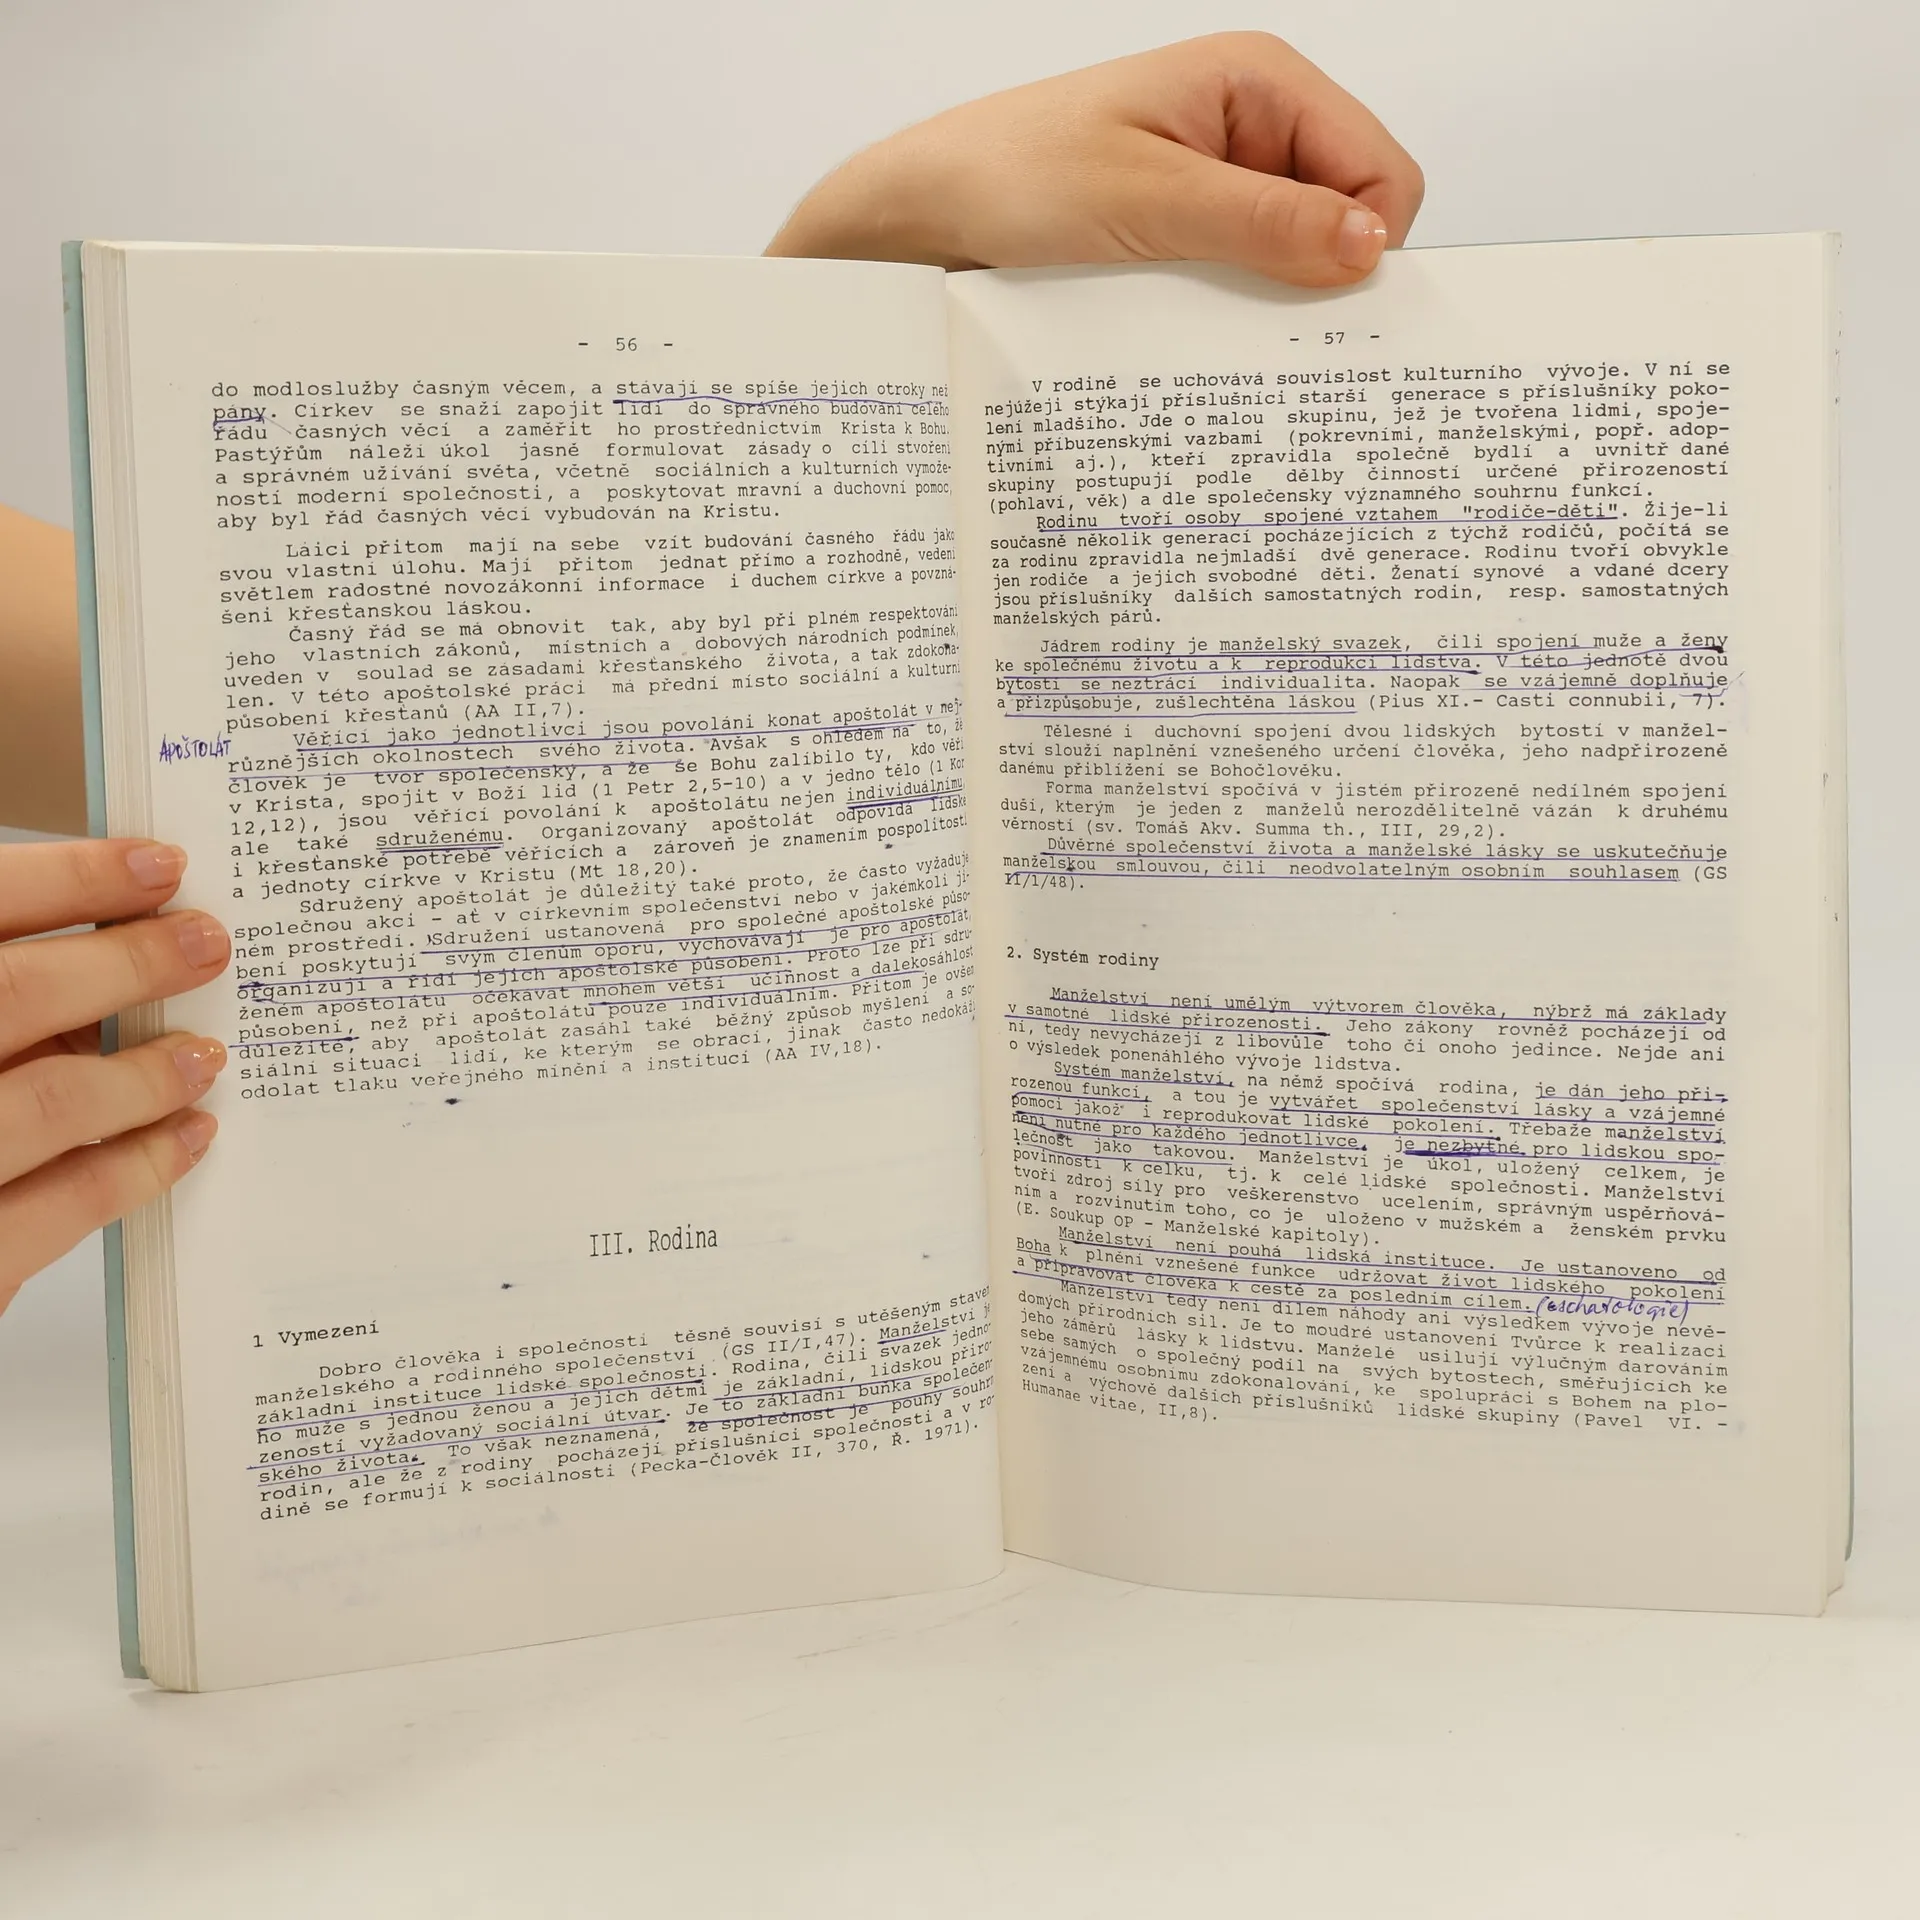 - 56 -
do modloslužby časným věcem, a stávají se spíše jejich otroky než
pány. Církev se snaží zapojit lidi do správného budování celého
řádu časných věcí a zaměřit ho prostřednictvím Krista k Bohu.
Pastýřům náleží úkol jasně formulovat zásady o cíli stvoření
a správném užívání světa, včetně sociálních a kulturních vymože-
ností moderní společnosti, a poskytovat mravní a duchovní pomoc,
aby byl řád časných věcí vybudován na Kristu.
Láici přitom mají na sebe vzít budování časného řádu jako
svou vlastní úlohu. Mají přitom jednat přímo a rozhodně, vedeni
světlem radostné novozákonní informace i duchem církve a povzná-
šeni křesťanskou láskou.
Časný řád se má obnovit tak, aby byl při plném respektování
jeho vlastních zákonů, místních a dobových národních podmínek,
uveden v soulad se zásadami křesťanského života, a tak zdokona-
len. V této apoštolské práci má přední místo sociální a kulturní
působení křesťanů (AA II,7).
APOŠTOLÁT
Věřící jako jednotlivci jsou povoláni konat apoštolát v nej-
různějších okolnostech svého života. Avšak s ohledem na to, že
člověk je tvor společenský, a že se Bohu zalíbilo ty, kdo věří
v Krista, spojit v Boží lid (1 Petr 2,5-10) a v jedno tělo (1 Kor
12,12), jsou věřící povolání k apoštolátu nejen individuálnímu,
ale také sdruženému. Organizovaný apoštolát odpovídá lidské
i křesťanské potřebě věřících a zároveň je znamením pospolitosti
a jednoty církve v Kristu (Mt 18,20).
Sdružený apoštolát je důležitý také proto, že často vyžaduje
společnou akci - ať v církevním společenství nebo v jakémkoli ji-
ném prostředí. Sdružení ustanovená pro společné apoštolské půso-
bení poskytují svým členům oporu, vychovávají je pro apoštolát,
organizují a řídí jejich apoštolské působení. Proto lze při sdru-
ženém apoštolátu očekávat mnohem větší účinnost a dalekosáhlost
působení, než při apoštolátu pouze individuálním. Přitom je ovšem
důležité, aby apoštolát zasáhl také běžný způsob myšlení a so-
siální situaci lidí, ke kterým se obrací, jinak často nedokáží
odolat tlaku veřejného mínění a institucí (AA IV,18).
III. Rodina
1 Vymezení
Dobro člověka i společnosti těsně souvisí s utěšeným stavem
manželského a rodinného společenství (GS II/I,47). Manželství je
základní instituce lidské společnosti. Rodina, čili svazek jedno-
ho muže s jednou ženou a jejich dětmi je základní, lidskou přiro-
zeností vyžadovaný sociální útvar. Je to základní buňka společen-
ského života. To však neznamená, že společnost je pouhý souhrn
rodin, ale že z rodiny pocházejí příslušníci společnosti a v ro-
dině se formují k sociálnosti (Pecka-Člověk II, 370, Ř. 1971).
- 57 -
V rodině se uchovává souvislost kulturního vývoje. V ní se
nejúžeji stýkají příslušníci starší generace s příslušníky poko-
lení mladšího. Jde o malou skupinu, jež je tvořena lidmi, spoje-
nými příbuzenskými vazbami (pokrevními, manželskými, popř. adop-
tivními aj.), kteří zpravidla společně bydlí a uvnitř dané
skupiny postupují podle dělby činností určené přirozeností
(pohlaví, věk) a dle společensky významného souhrnu funkcí.
Rodinu tvoří osoby spojené vztahem "rodiče-děti". Žije-li
současně několik generací pocházejících z týchž rodičů, počítá se
za rodinu zpravidla nejmladší dvě generace. Rodinu tvoří obvykle
jen rodiče a jejich svobodné děti. Ženatí synové a vdané dcery
jsou příslušníky dalších samostatných rodin, resp. samostatných
manželských párů.
Jádrem rodiny je manželský svazek, čili spojení muže a ženy
ke společnému životu a k reprodukci lidstva. V této jednotě dvou
bytostí se neztrácí individualita. Naopak se vzájemně doplňuje
a přizpůsobuje, zušlechtěna láskou (Pius XI.- Casti connubii, 7).
Tělesné i duchovní spojení dvou lidských bytostí v manžel-
ství slouží naplnění vznešeného určení člověka, jeho nadpřirozeně
danému přiblížení se Bohočlověku.
Forma manželství spočívá v jistém přirozeně nedílném spojení
duší, kterým je jeden z manželů nerozdělitelně vázán k druhému
věrností (sv. Tomáš Akv. Summa th., III, 29,2).
Důvěrné společenství života a manželské lásky se uskutečňuje
manželskou smlouvou, čili neodvolatelným osobním souhlasem (GS
II/1/48).
2. Systém rodiny
Manželství není umělým výtvorem člověka, nýbrž má základy
v samotné lidské přirozenosti. Jeho zákony rovněž pocházejí od
ní, tedy nevycházejí z libovůle toho či onoho jedince. Nejde ani
o výsledek ponenáhlého vývoje lidstva.
Systém manželství, na němž spočívá rodina, je dán jeho při-
rozenou funkcí, a tou je vytvářet společenství lásky a vzájemné
pomoci jakož i reprodukovat lidské pokolení. Třebaže manželství
není nutné pro každého jednotlivce, je nezbytné pro lidskou spo-
lečnost jako takovou. Manželství je úkol, uložený celkem, je
povinností k celku, tj. k celé lidské společnosti. Manželství
tvoří zdroj síly pro veškerenstvo ucelením, správným uspěrňová-
ním a rozvinutím toho, co je uloženo v mužském a ženském prvku
(E. Soukup OP - Manželské kapitoly).
Manželství není pouhá lidská instituce. Je ustanoveno od
Boha k plnění vznešené funkce udržovat život lidského pokolení
a připravovat člověka k cestě za posledním cílem. (eschatologie)
Manželství tedy není dílem náhody ani výsledkem vývoje nevě-
domých přírodních sil. Je to moudré ustanovení Tvůrce k realizaci
jeho záměrů lásky k lidstvu. Manželé usilují výlučným darováním
sebe samých o společný podíl na svých bytostech, směřujících ke
vzájemnému osobnímu zdokonalování, ke spolupráci s Bohem na plo-
zení a výchově dalších příslušníků lidské skupiny (Pavel VI. -
Humanae vitae, II,8).